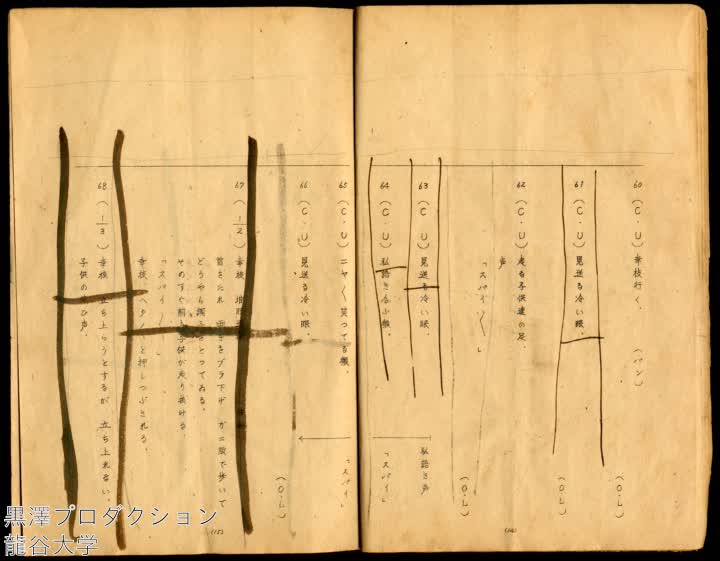 60
幸枝行く。
(パン)
(O・L)
61
(C・U)
見送る冷い眼。
(O・L)
62
(C・U)
走る子供達の足。
声
「スパイ〱」
(O・L)
63
(C・U)
見送る冷い眼。
私語き声
64
(C・U)
私語き合ふ
「スパイ」
(14)
65
(C・U)
ニヤ〱笑つてる
「スパイ」
66
(C・U)
見送る冷い眼。
(O・L)
67
(1/2)
幸枝
首をたれ
をブラ下げ ガニ股で歩いて
どうやら
とつてゐる。
そのすぐ前を子供が走り抜ける。
「スパイ〱」
幸枝
と押しつぶされる。
68
(1/3)
幸枝 立ち上らうとするが 立ち上れない。
子供の
び声。
(15)
黒澤プロダクション
龍谷大学